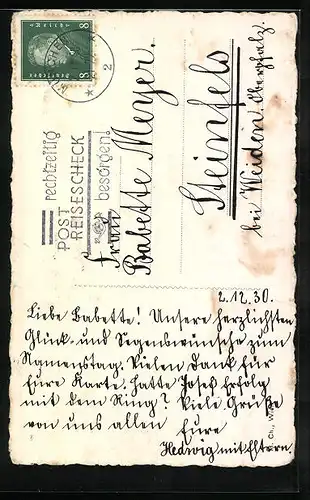 MÜNCHEN
2
8 8
Deutsches Reich
rechtzeitig
POST
REISESCHECK
besorgen!
Frau
Babette Meyer.
Steinfels
bei Weiden, Oberpfalz.
2.12.30.
Liebe Babette! Unsere herzlichsten
Glück- und Segenswünsche zum
Namenstag. Vielen Dank für
Eure Karte. Hatte Josef Erfolg
mit dem Ring? Viele Grüße
von uns allen Eure
Hedwig mit Eltern.